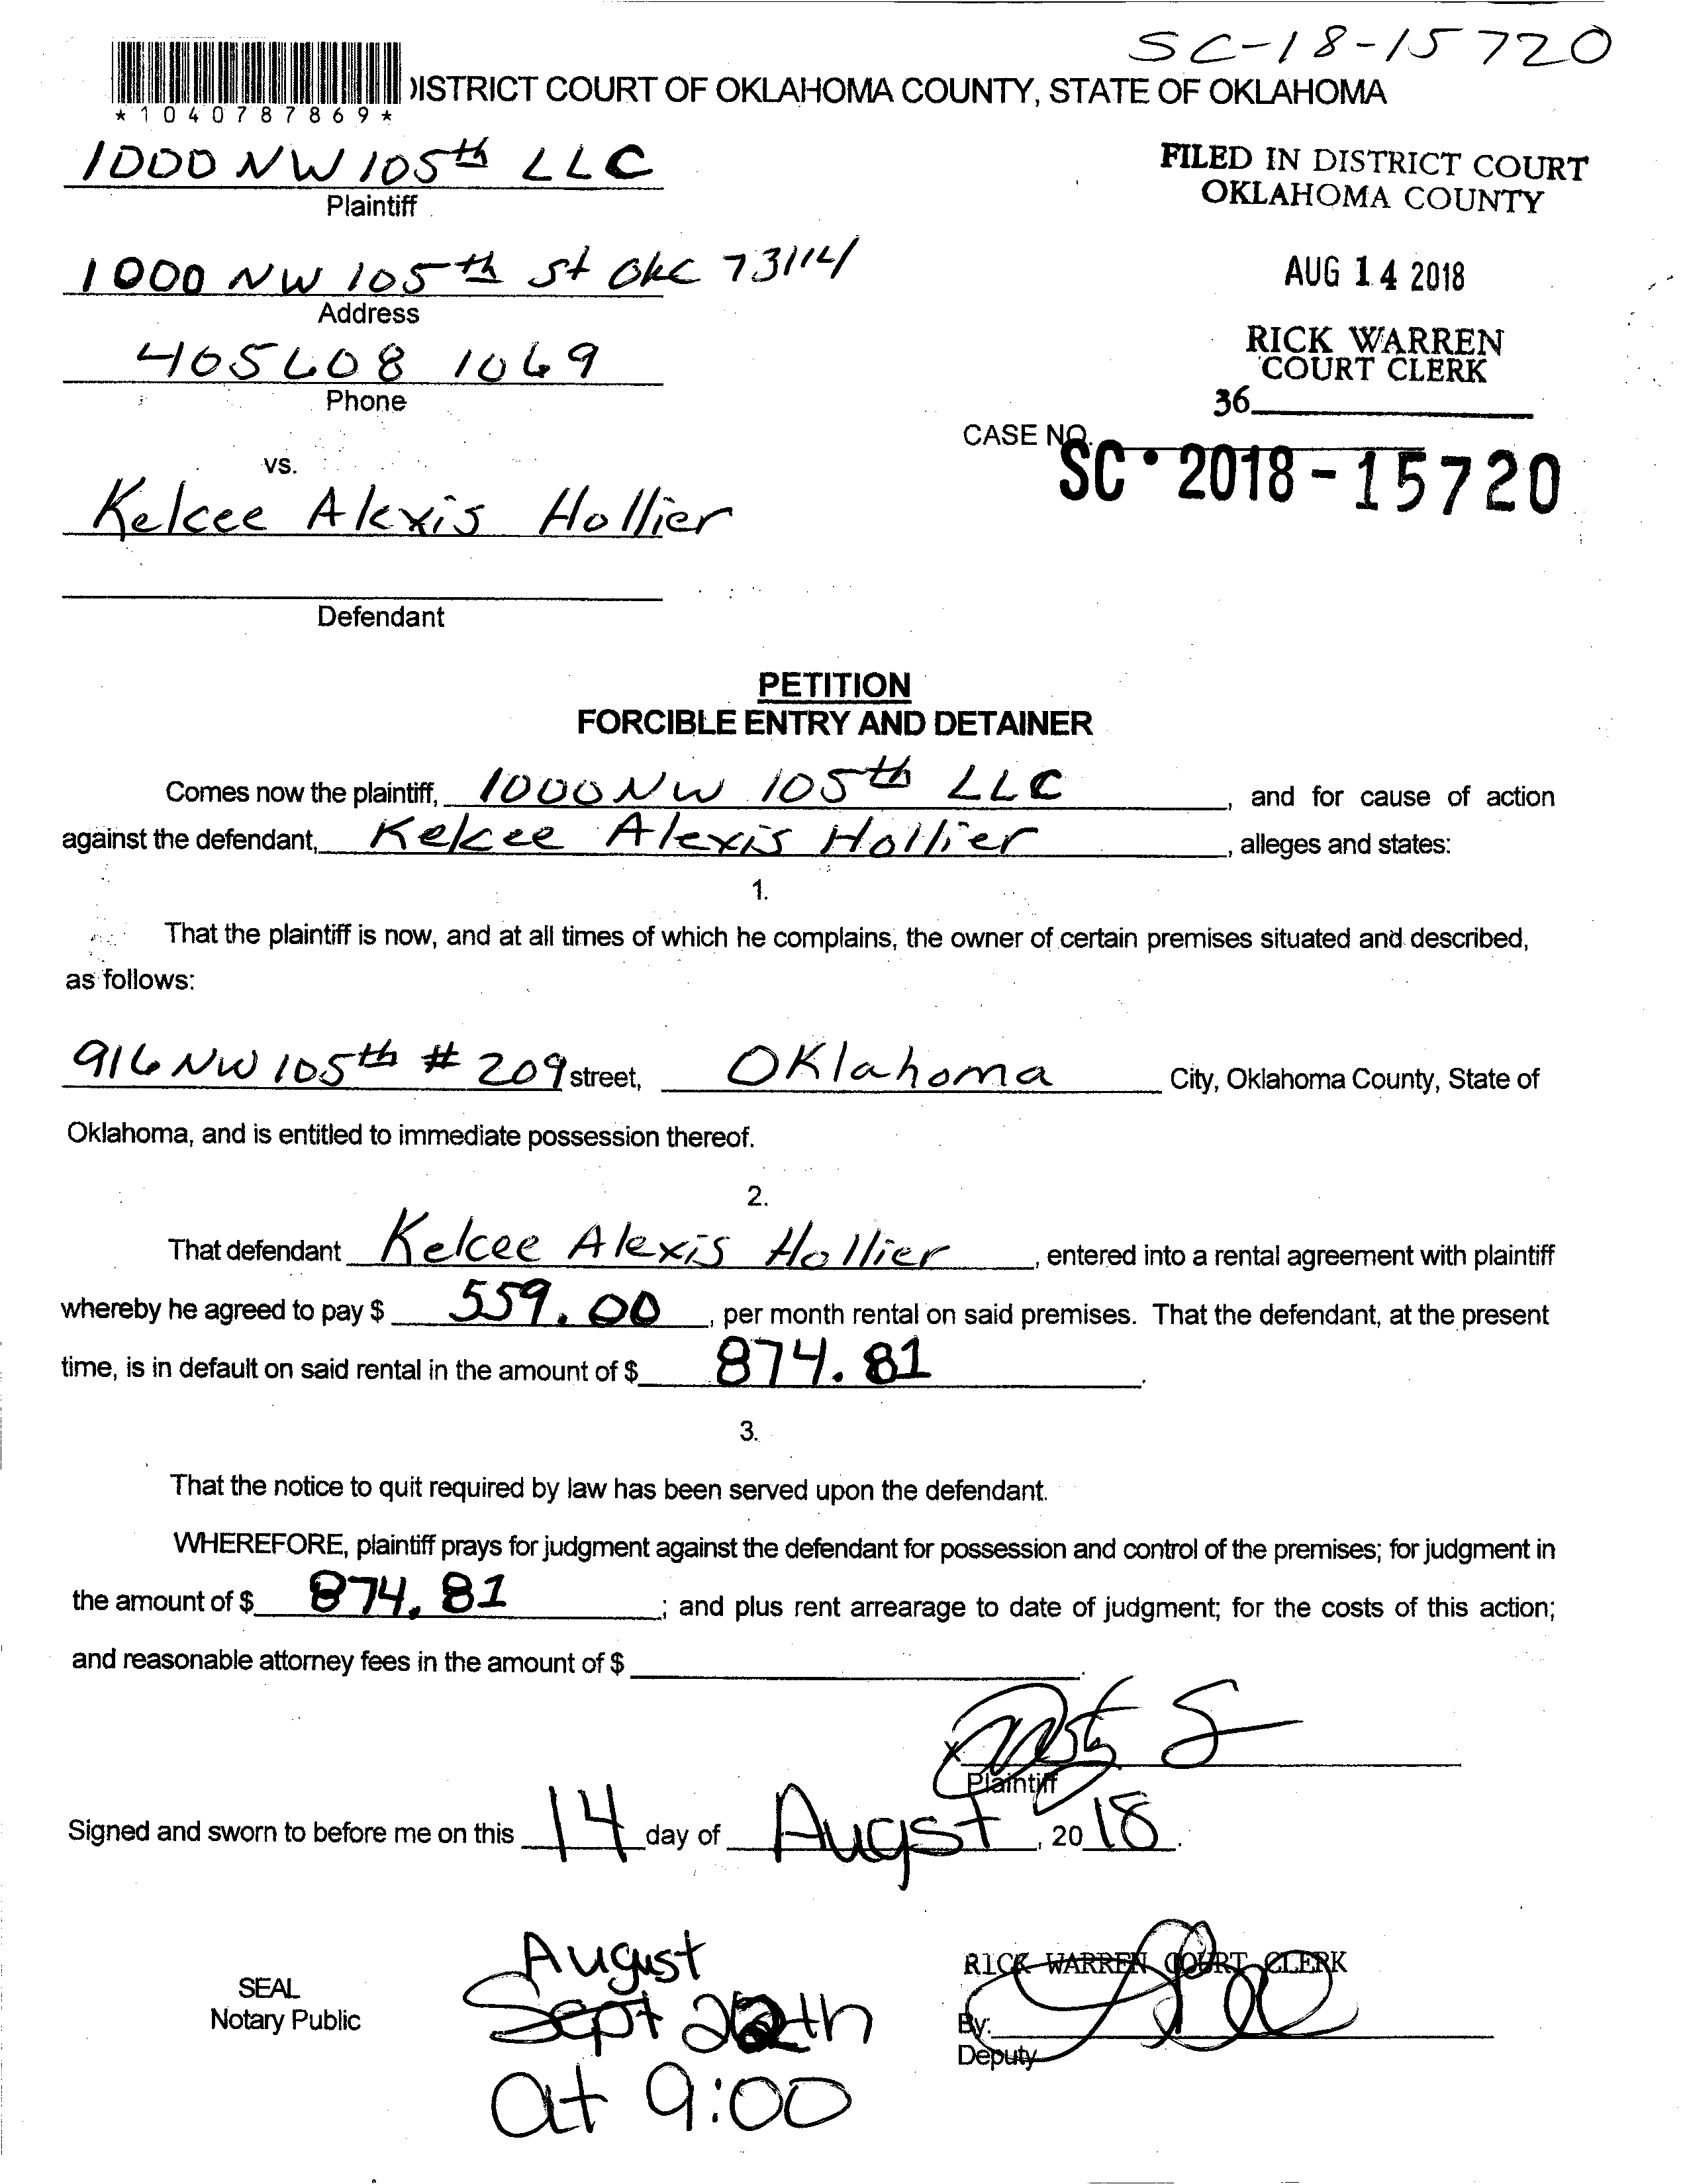 SC-18-15720
DISTRICT COURT OF OKLAHOMA COUNTY, STATE OF OKLAHOMA
*1040787869*
1000 NW 105th LLC
Plaintiff
FILED IN DISTRICT COURT
OKLAHOMA COUNTY
1000 NW 105th St OKC 73114
Address
AUG 14 2018
405 608 1069
Phone
RICK WARREN
COURT CLERK
36
CASE NO.
SC • 2018 - 15720
vs.
Kelcee Alexis Hollier
Defendant
PETITION
FORCIBLE ENTRY AND DETAINER
Comes now the plaintiff, 1000 NW 105th LLC, and for cause of action
against the defendant, Kelcee Alexis Hollier, alleges and states:
1.
That the plaintiff is now, and at all times of which he complains, the owner of certain premises situated and described,
as follows:
916 NW 105th # 209 street, Oklahoma City, Oklahoma County, State of
Oklahoma, and is entitled to immediate possession thereof.
2.
That defendant Kelcee Alexis Hollier, entered into a rental agreement with plaintiff
whereby he agreed to pay $ 559.00, per month rental on said premises. That the defendant, at the present
time, is in default on said rental in the amount of $ 874.81.
3.
That the notice to quit required by law has been served upon the defendant.
WHEREFORE, plaintiff prays for judgment against the defendant for possession and control of the premises; for judgment in
the amount of $ 874.81; and plus rent arrearage to date of judgment; for the costs of this action;
and reasonable attorney fees in the amount of $.
X
Plaintiff
Signed and sworn to before me on this 14 day of Augst, 2018.
August
SEAL
Notary Public
Sept
at 9:00
RICK WARREN COURT CLERK
By:
Deputy